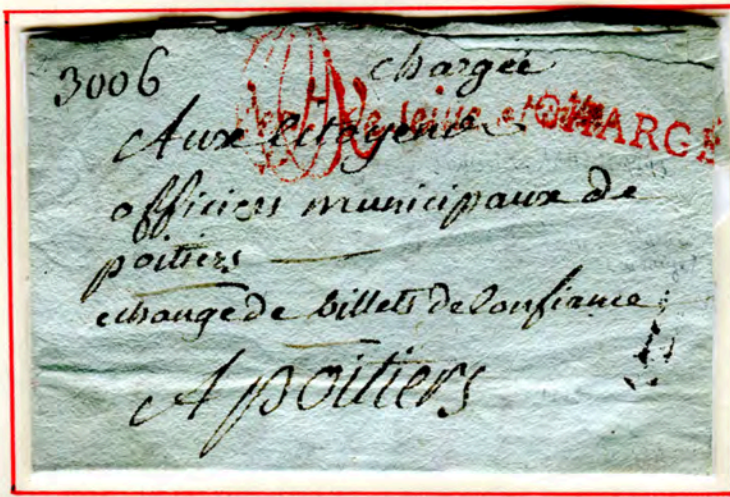 3006
chargée
de Seine et Oise
CHARGÉ
Aux Citoyens
officiers municipaux de
poitiers
échange de billets de Confiance
A poitiers